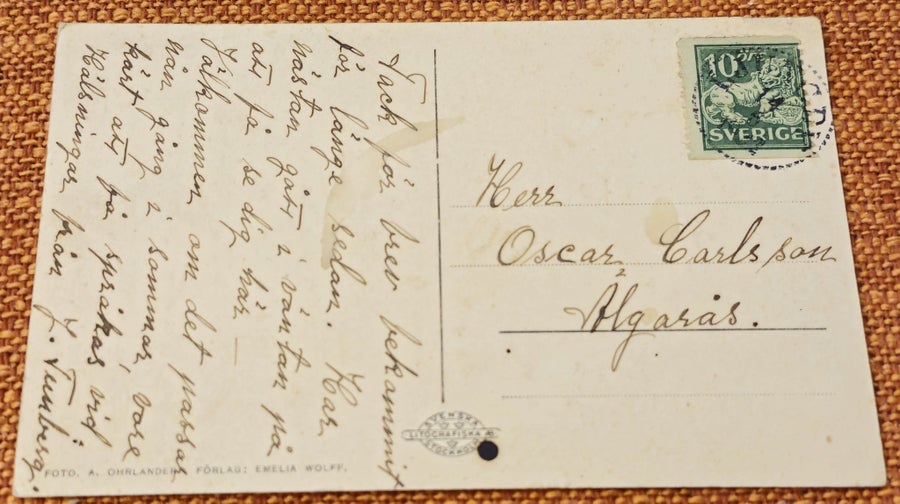 Tack för brev bekommit
för länge sedan. Har
nästan gått i väntan på
att få se dig här —
Välkommen om det passar
nån gång i sommar, vore
kärt att få språkas vid
Hälsningar från J. Tunberg.
10
SVERIGE
Herr
Oscar Carlsson
Älgarås.
SVENSKA
LITOGRAFISKA AB
STOCKHOLM
FOTO. A. OHRLANDER, FÖRLAG: EMELIA WOLFF.